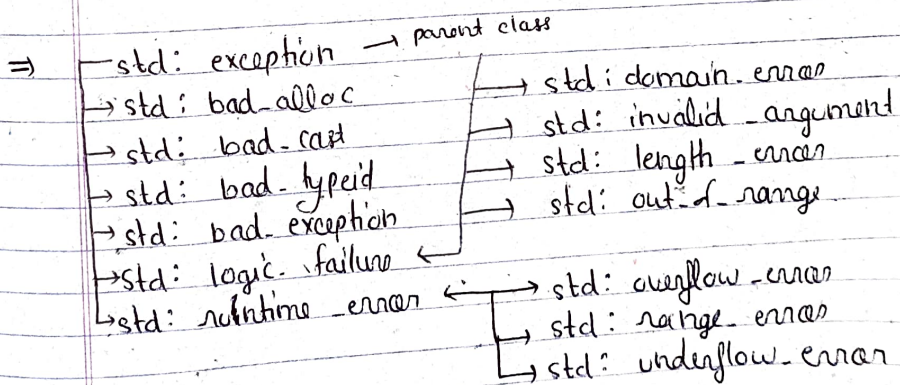 ⇒ std: exception → parent class
→ std: bad_alloc
→ std: bad_cast
→ std: bad_typeid
→ std: bad_exception
→ std: logic_failure ←
→ std: runtime_error ←
→ std: domain_error
→ std: invalid_argument
→ std: length_error
→ std: out_of_range
→ std: overflow_error
→ std: range_error
→ std: underflow_error